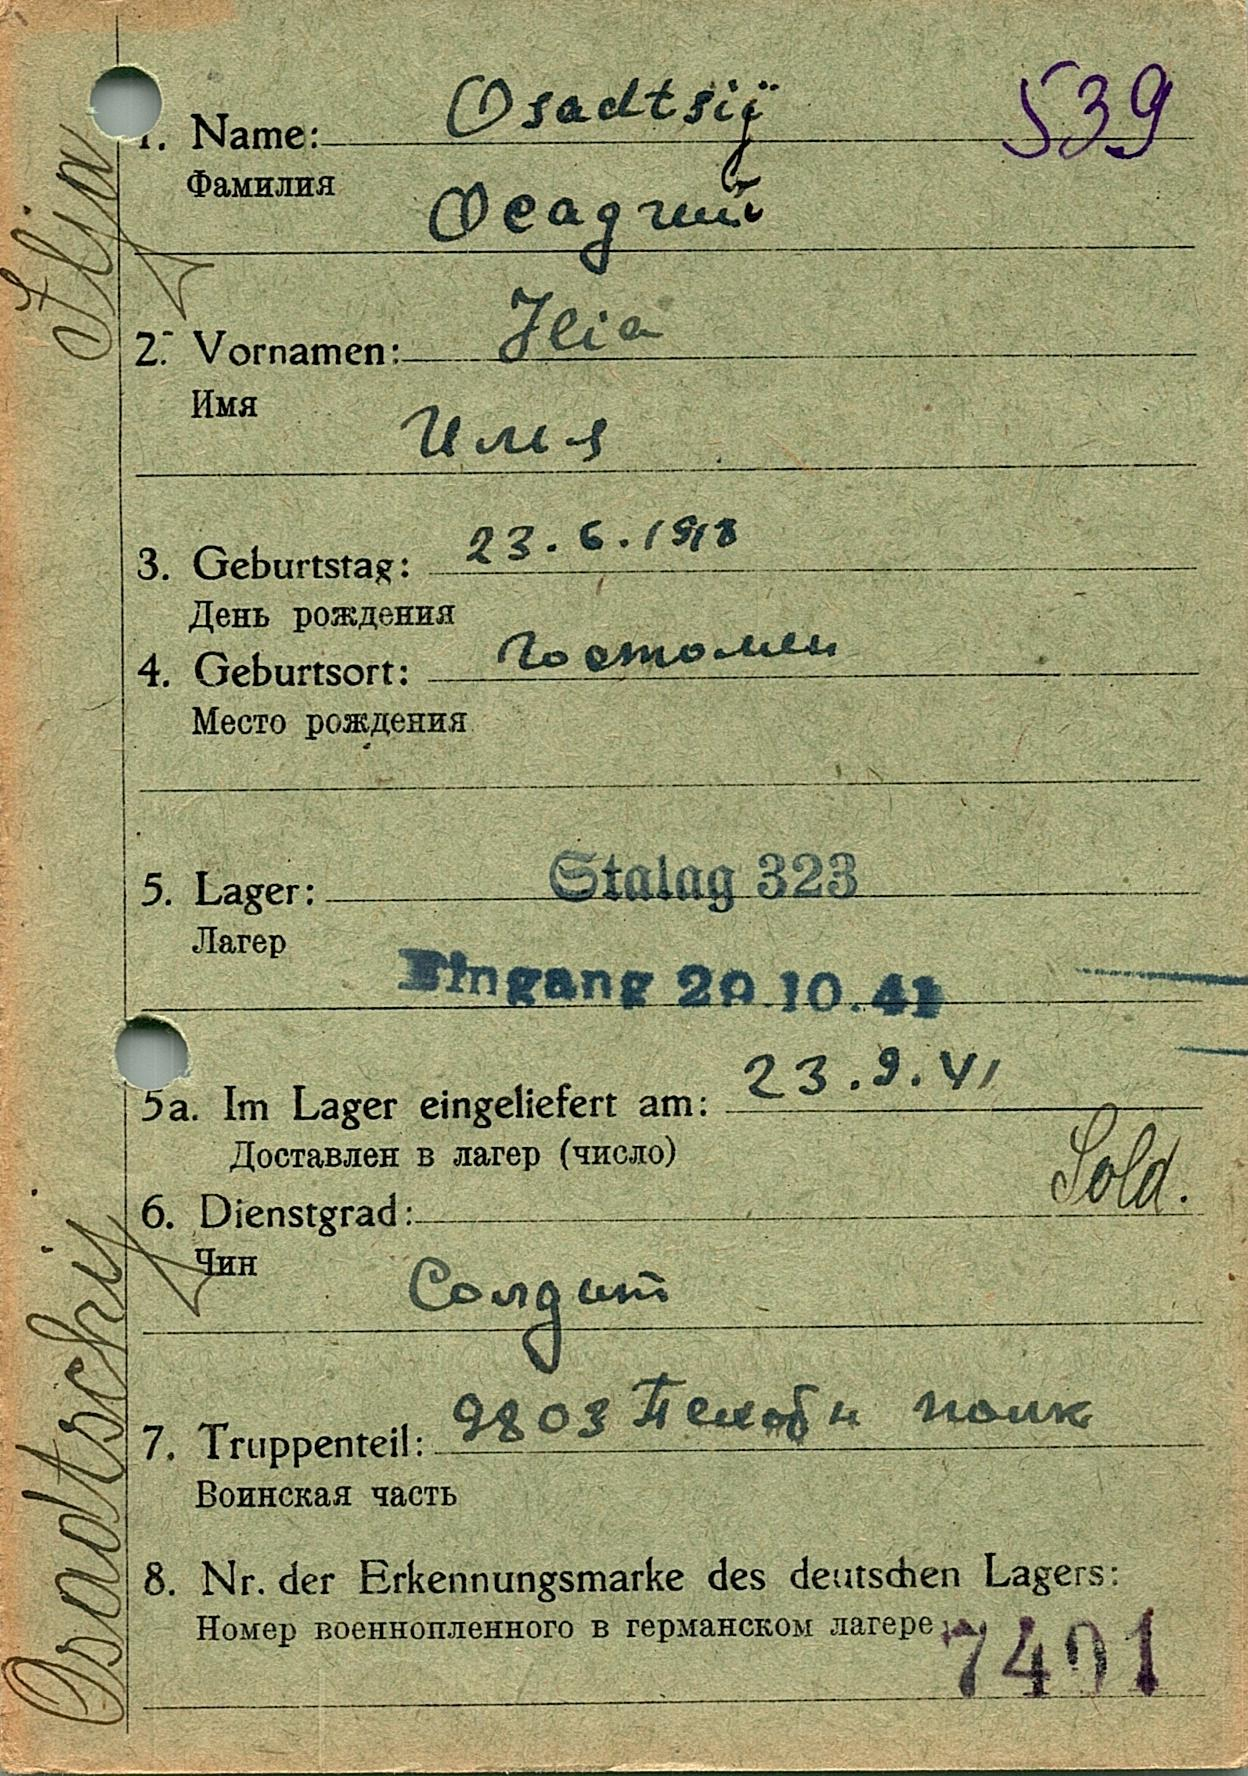 539
1. Name: Osadtsij
Фамилия
Осадчий
2. Vornamen: Ilia
Имя
Илия
3. Geburtstag: 23.6.1918
День рождения
4. Geburtsort: Гостомел
Место рождения
5. Lager: Stalag 323
Лагер
Eingang 29.10.41
5a. Im Lager eingeliefert am: 23.9.41
Доставлен в лагер (число)
Sold.
6. Dienstgrad:
Чин
Солдат
7. Truppenteil: полк
Воинская часть
8. Nr. der Erkennungsmarke des deutschen Lagers:
Номер военнопленного в германском лагере
7491
Osadtschij
Ilja